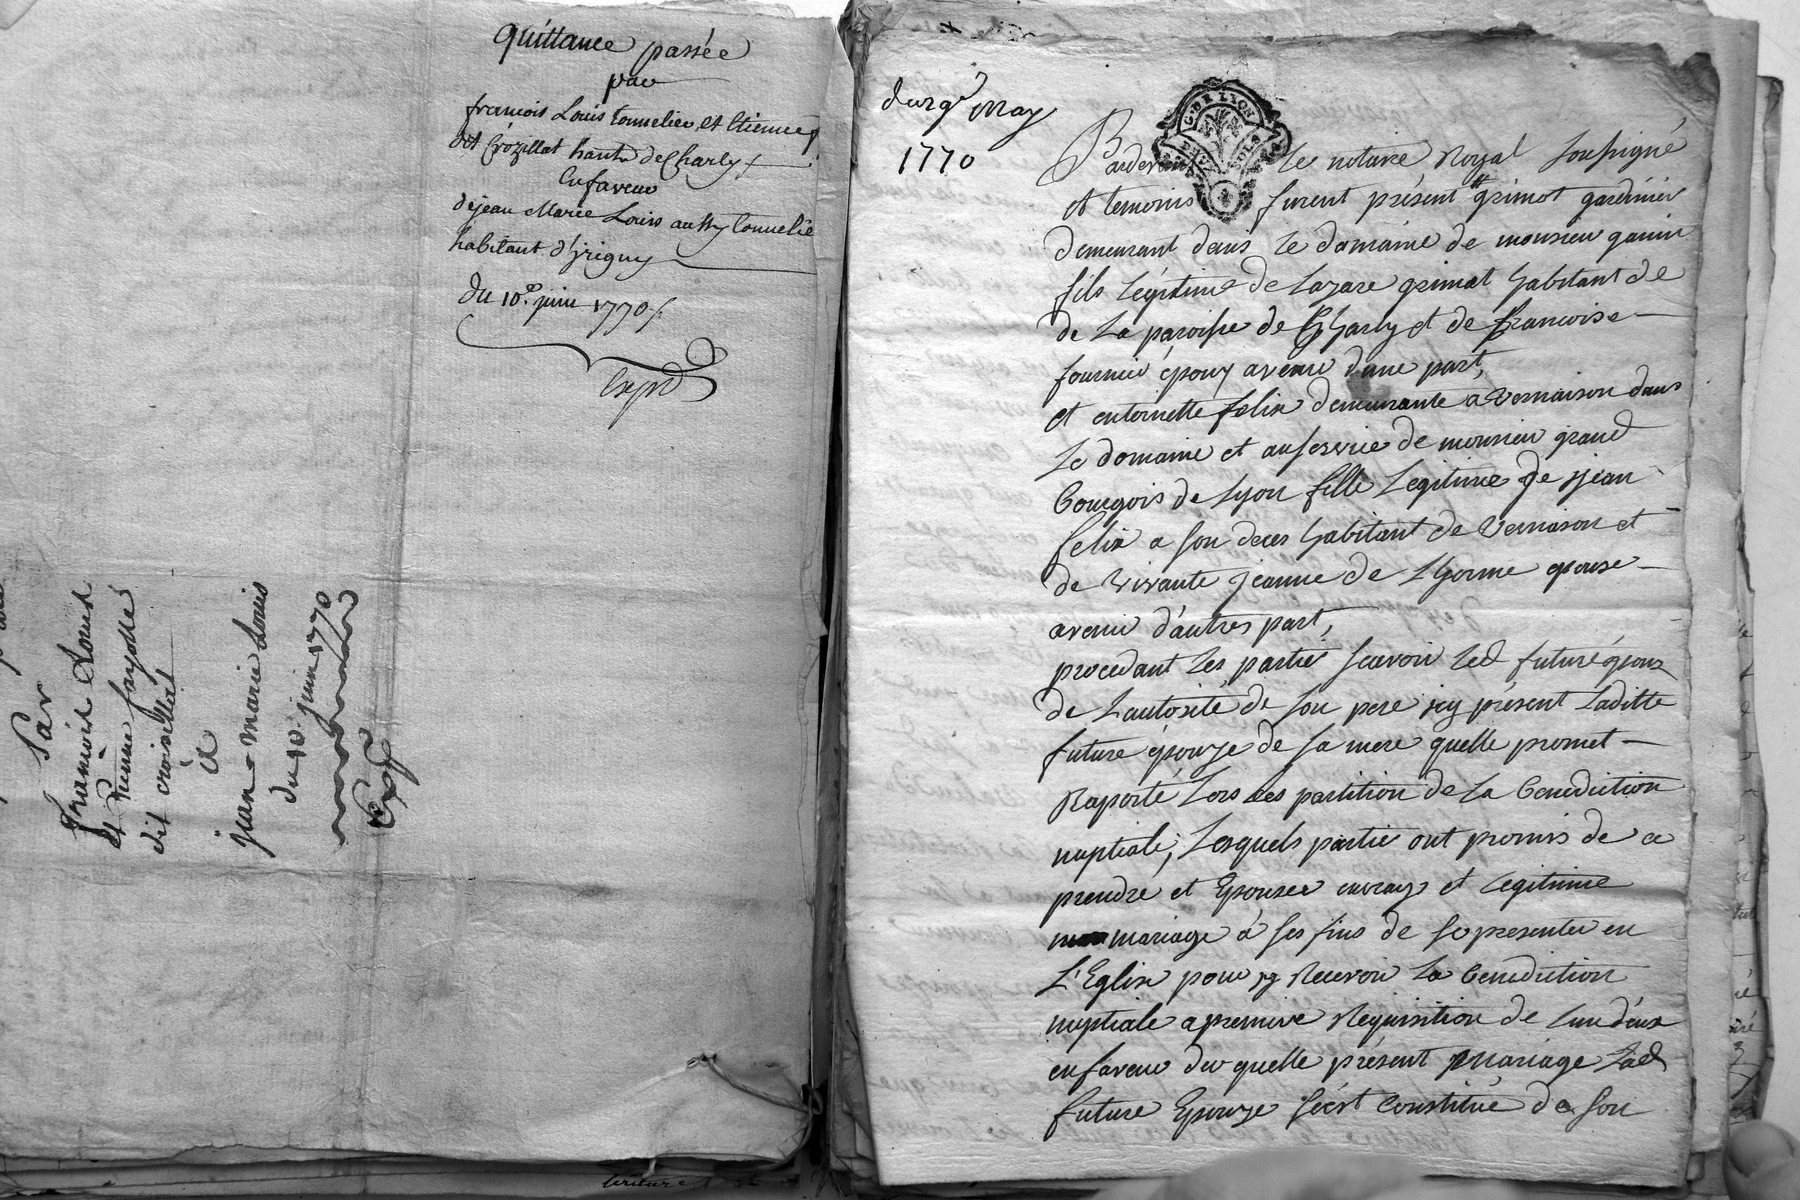 quittance passée
par
francois Louis tonnelier et Etienne f
dit Crozillat hants de Charly
En faveur
de jean Marie Louis aussy tonnelie
habitant d'jrigny
du 10e juin 1770
Expd
Par
françois Louis
et Etienne fayolle
dit croizillat
à
jean-marie Louis
du 10 juin 1770
Expd
du 29e may
1770
G. DE LYON
DEUX SOLS
Pardevant le notaire Royal soussigné
et temoins furent présent grimot gardinier
demeurant dans le domaine de monsieu
fils Légitime de Lazare grimot habitant de
de La paroisse de Charly et de francoise
fournié époux avenir d'une part,
et entoinette felix demeurante a Vernaison dans
Le domaine et au servie de monsieu grand
bourgois de Lyon fille Legitime de jean
felix a son deces habitant de Vernaison et
de vivante jeanne de Lhorme epouse
avenir d'autres part,
procedant Les partie scavoir Led futuré époux
de Lautorité de son pere icy présent Laditte
future épouze de sa mere quelle promet
Raporté Lors des partition de La benediction
nuptiale, Lesquels partie ont promis de ce
prendre et Epouser envray et legitime
mariage à ses fins de se presenter en
L'Eglise pour y Recevoir La benediction
nuptiale a premiere Requisition de Lun d'eux
en faveur du quelle présent Mariage Lad
future Epouze s'est Constitué de son